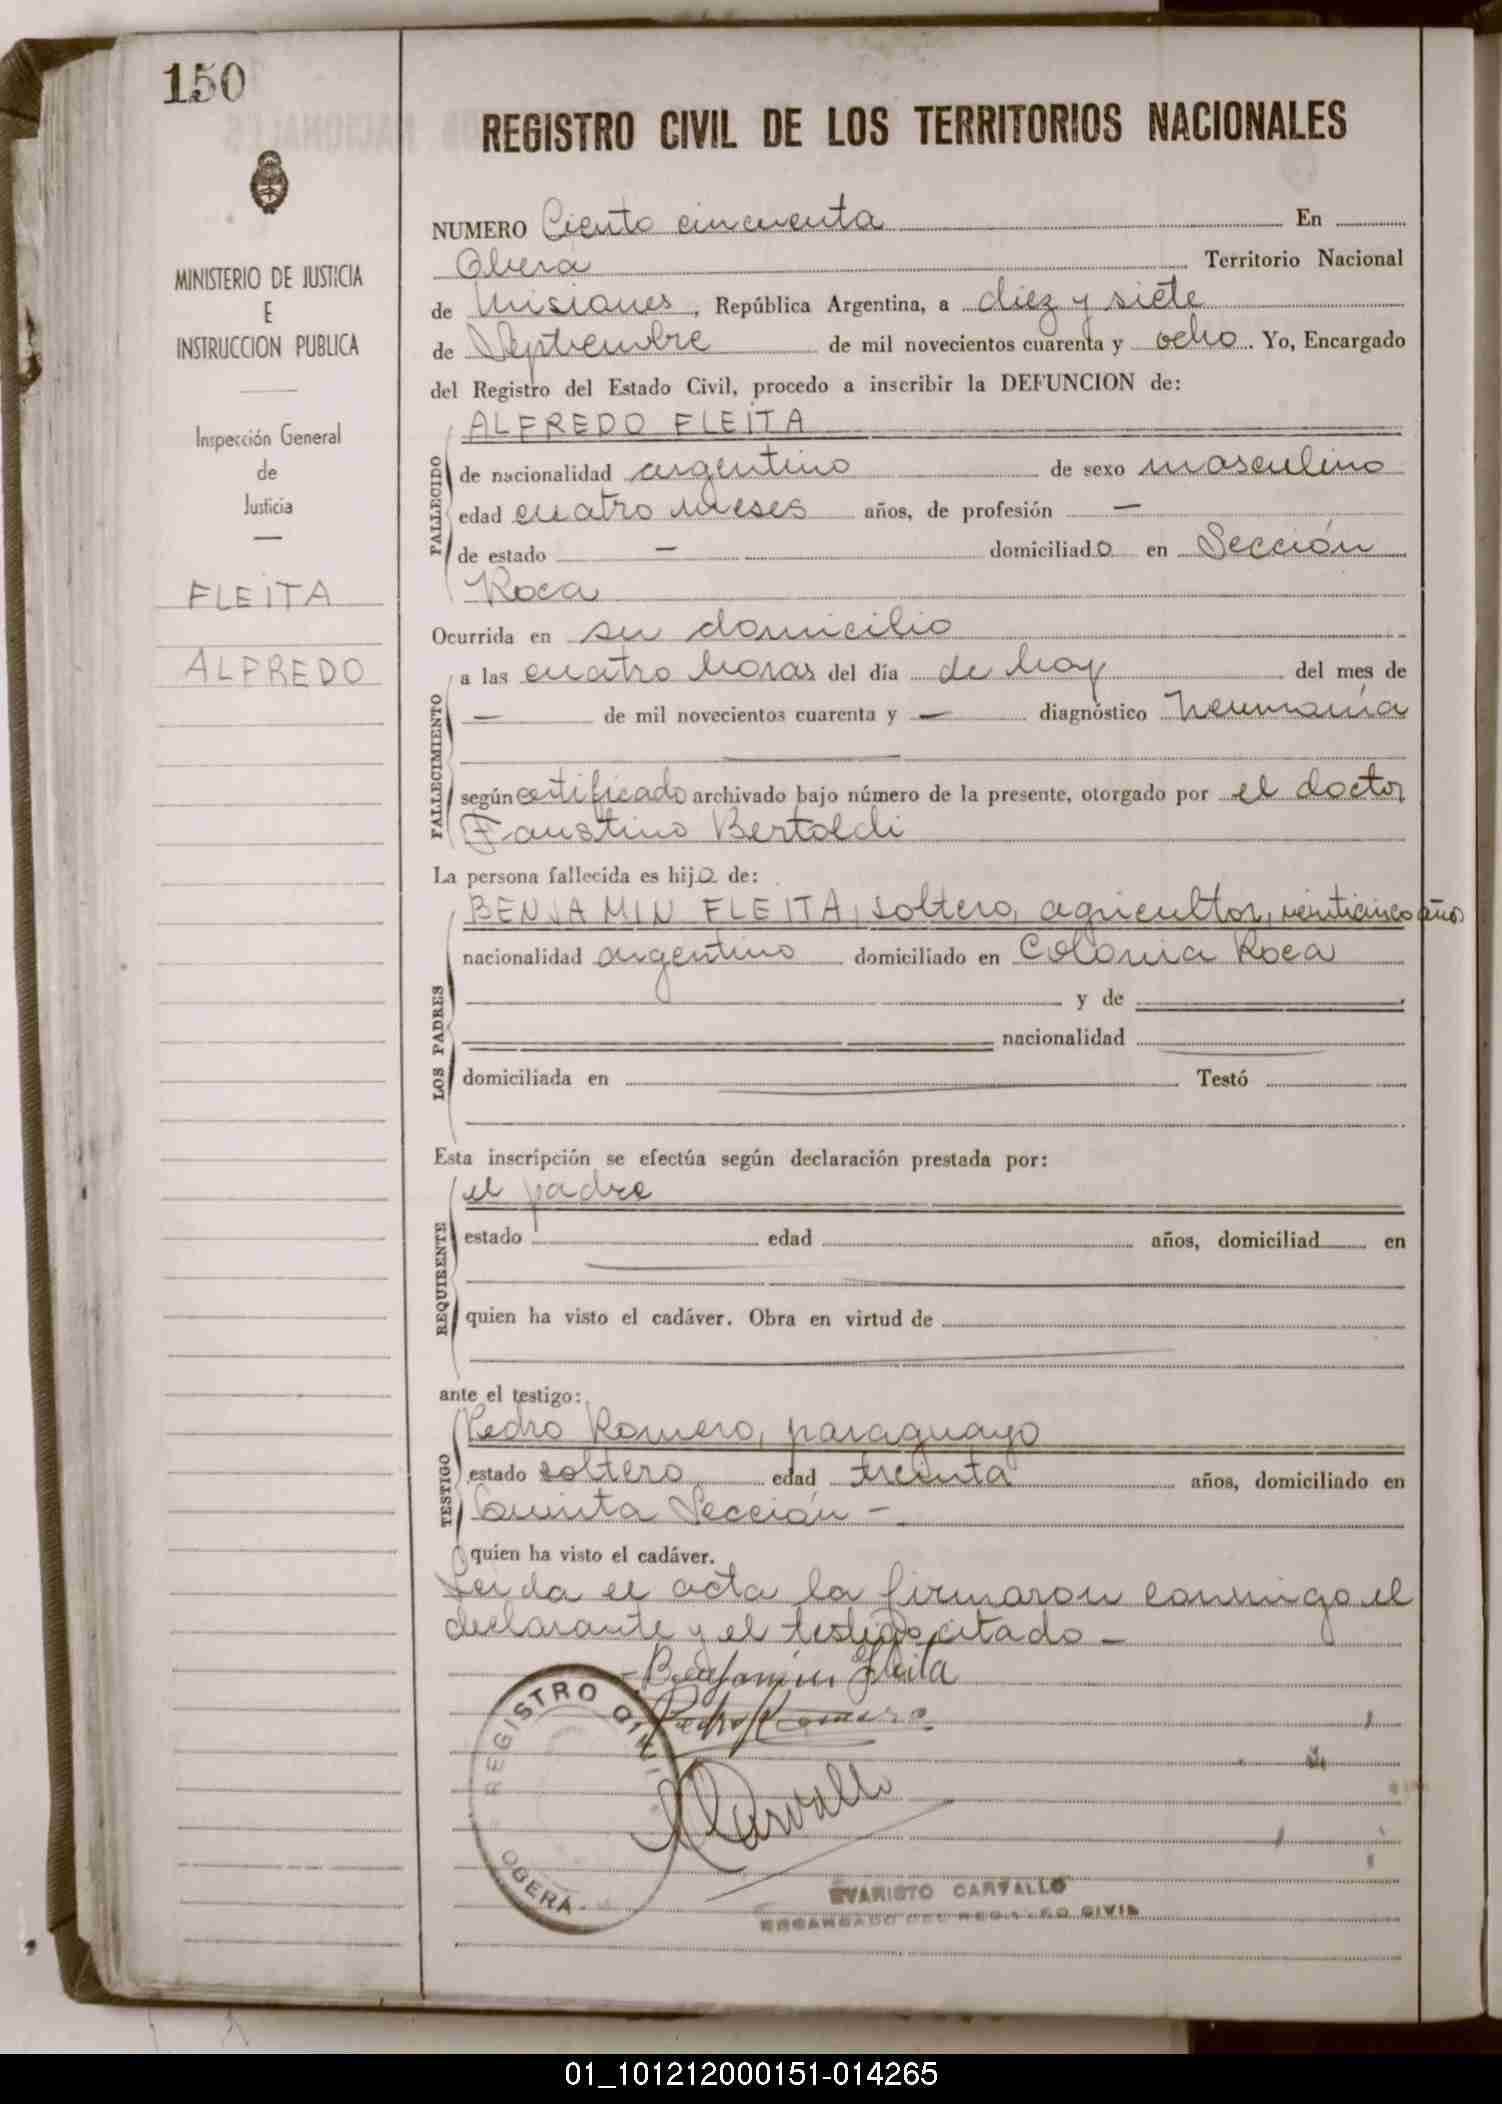 150
REGISTRO CIVIL DE LOS TERRITORIOS NACIONALES
MINISTERIO DE JUSTICIA
E
INSTRUCCION PUBLICA
Inspección General
de
Justicia
FLEITA
ALFREDO
NUMERO Ciento cincuenta En
Obera Territorio Nacional
de Misiones, República Argentina, a diez y siete
de Septiembre de mil novecientos cuarenta y ocho. Yo, Encargado
del Registro del Estado Civil, procedo a inscribir la DEFUNCION de:
FALLECIDO
ALFREDO FLEITA
de nacionalidad argentino de sexo masculino
edad cuatro meses años, de profesión —
de estado — domiciliado en Sección
Roca
Ocurrida en su domicilio
FALLECIMIENTO
a las cuatro horas del día de hoy del mes de
— de mil novecientos cuarenta y — diagnóstico neumonía
según certificado archivado bajo número de la presente, otorgado por el doctor
Faustino Bertoldi
La persona fallecida es hijo de:
LOS PADRES
BENJAMIN FLEITA, soltero, agricultor, veinticinco años
nacionalidad argentino domiciliado en Colonia Roca
y de
nacionalidad
domiciliada en Testó
Esta inscripción se efectúa según declaración prestada por:
REQUIRENTE
el padre
estado edad años, domiciliad en
quien ha visto el cadáver. Obra en virtud de
ante el testigo:
TESTIGO
Pedro Romero, paraguayo
estado soltero edad treinta años, domiciliado en
Quinta Sección -
quien ha visto el cadáver.
Leida el acta la firmaron conmigo el
declarante y el testigo citado -
Benjamin Fleita
Pedro Romero
Carvallo
REGISTRO CIVIL
OBERA
EVARISTO CARVALLO
ENCARGADO DEL REGISTRO CIVIL
01_101212000151-014265